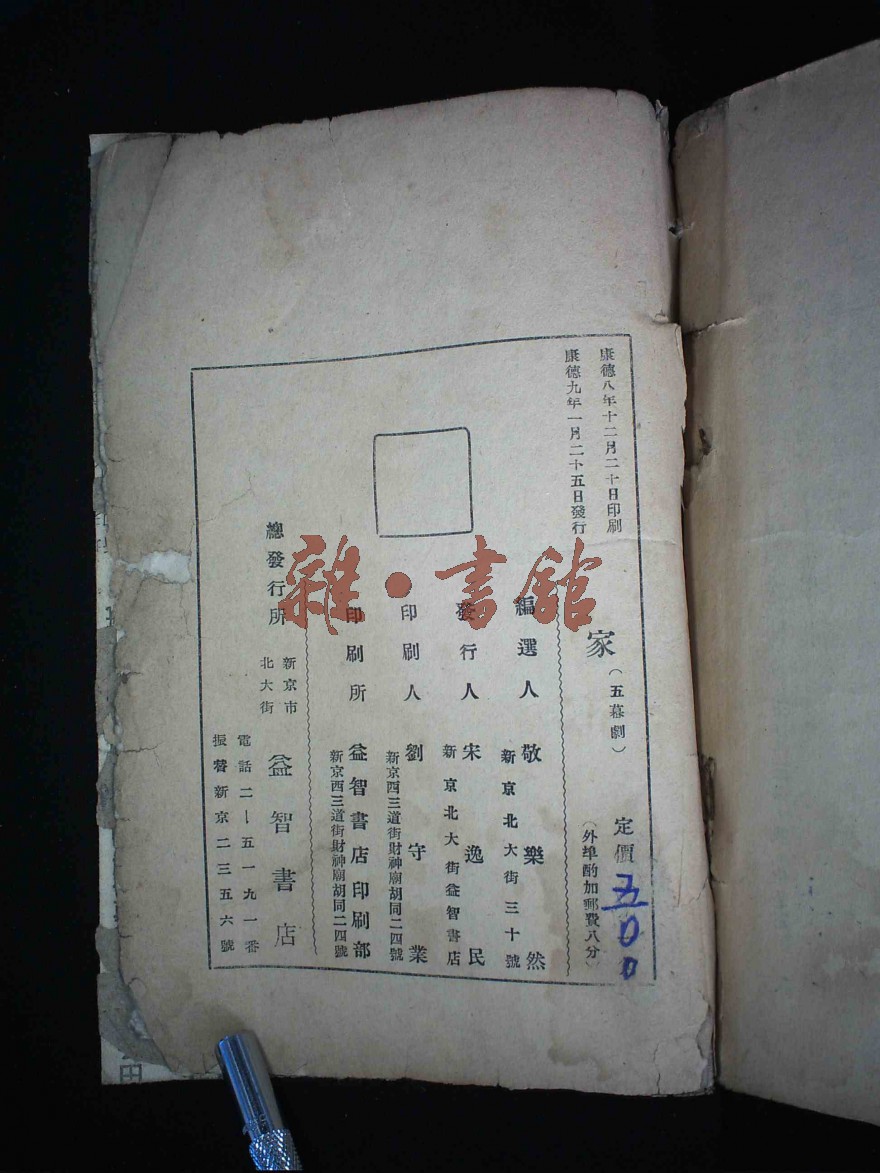 康德八年十二月二十日印刷
康德九年一月二十五日發行
家（五幕劇）
定價 五00
（外埠酌加郵費八分）
編選人 敬樂然
新京北大街三十號
發行人 宋逸民
新京北大街益智書店
印刷人 劉守業
新京西三道街財神廟胡同二四號
印刷所 益智書店印刷部
新京西三道街財神廟胡同二四號
總發行所 新京市北大街 益智書店
電話二—五一九一番
振替新京二三五六號
雜·書館
田